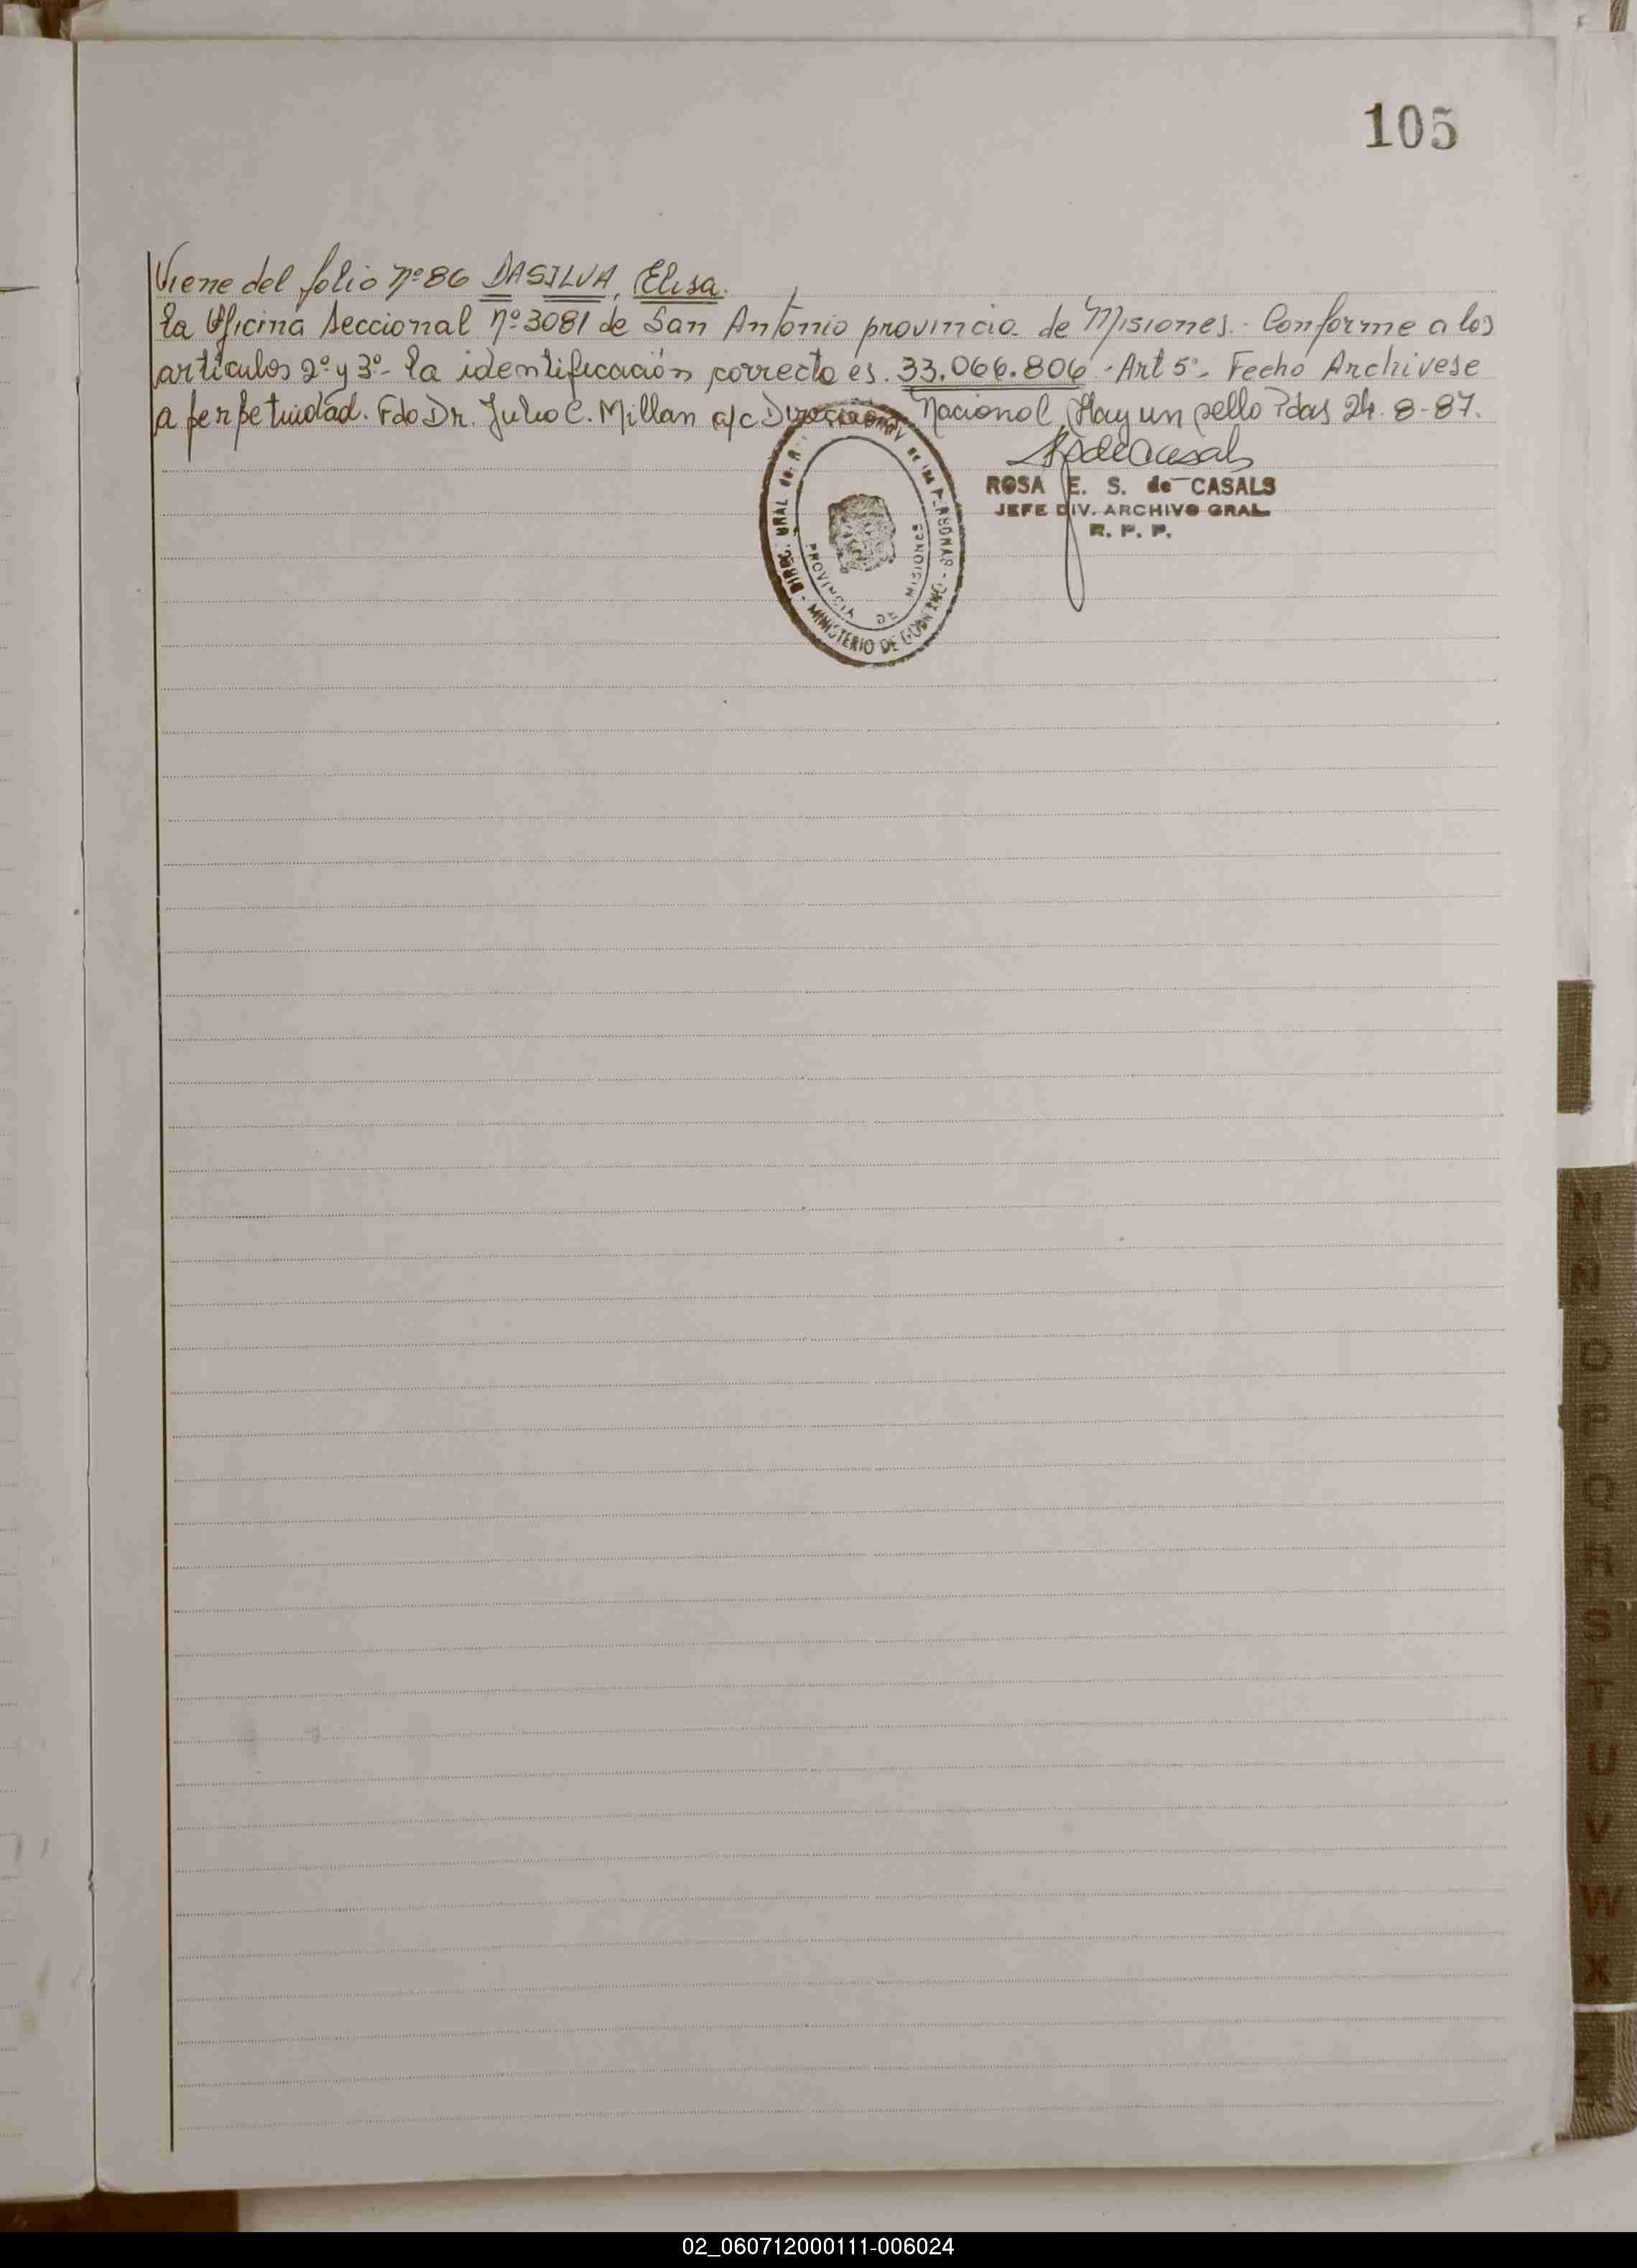 105
Viene del folio nº 86 DASILVA, Elisa.
la Oficina Seccional nº 3081 de San Antonio provincia de Misiones.- Conforme a los
artículos 2º y 3º- la identificación correcta es. 33.066.806 - Art 5º- Fecho Archivese
a perpetuidad. Fdo Dr. Julio C. Millan a/c Dirección Nacional, Hay un sello Pdas 24-8-87.
ROSA E. S. de CASALS
JEFE DIV. ARCHIVO GRAL
R. P. P.
DIREC. GRAL de de las PERSONAS - MINISTERIO DE GOBIERNO -
PROVINCIA DE MISIONES
M
N
O
P
Q
R
S
T
U
V
W
X
02_060712000111-006024